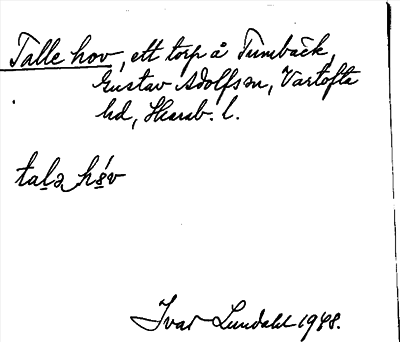 Talle hov, ett torp å Tumbäck,
Gustav Adolfs sn, Vartofta
hd, Skarab. l.
talə hóv
Ivar Lundahl 1948.